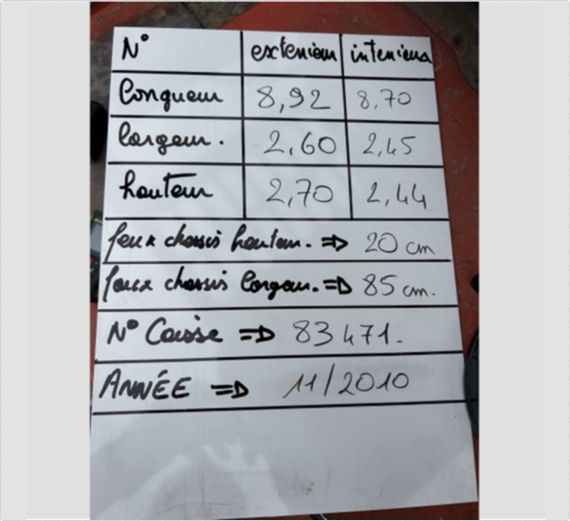 N° extérieur intérieur
longueur 8,92 8,70
largeur. 2,60 2,45
hauteur 2,70 2,44
faux chassis hauteur. => 20 cm
faux chassis largeur. => 85 cm.
N° Caisse => 83471.
ANNÉE => 11/2010